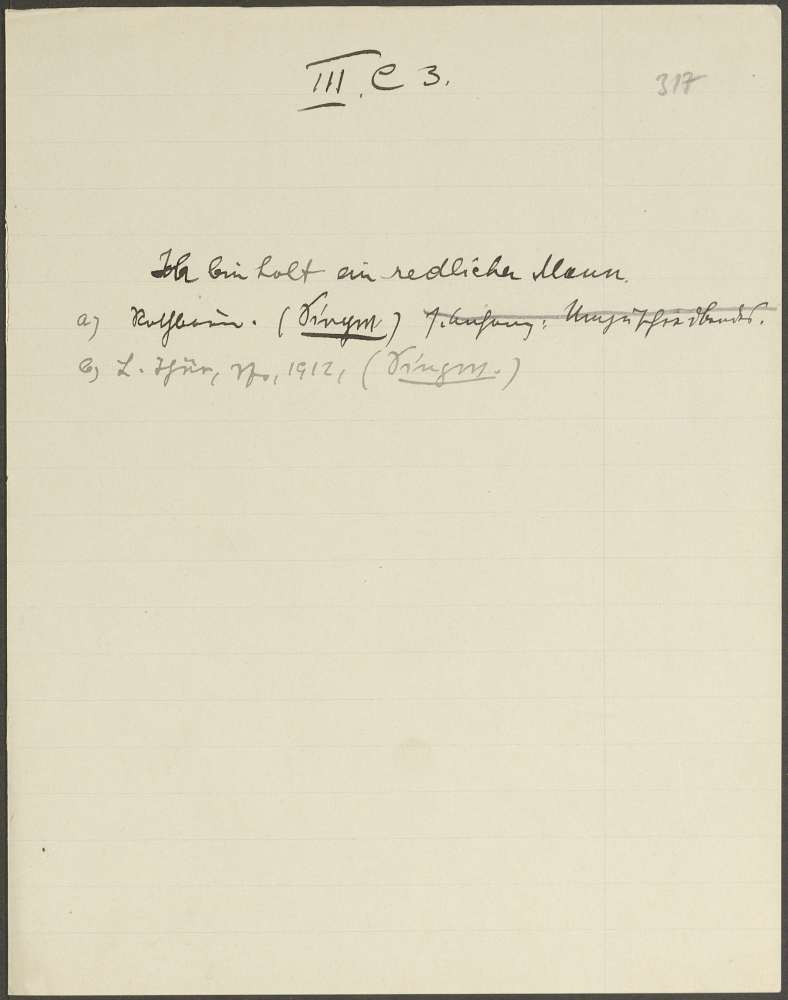 III. C 3.
317
Ich bin halt ein redlicher Mann.
a) Rothbaum. (Singw) s. Anfang: Umzuschreibendes.
b) L. Thür, 1912, (Singw.)